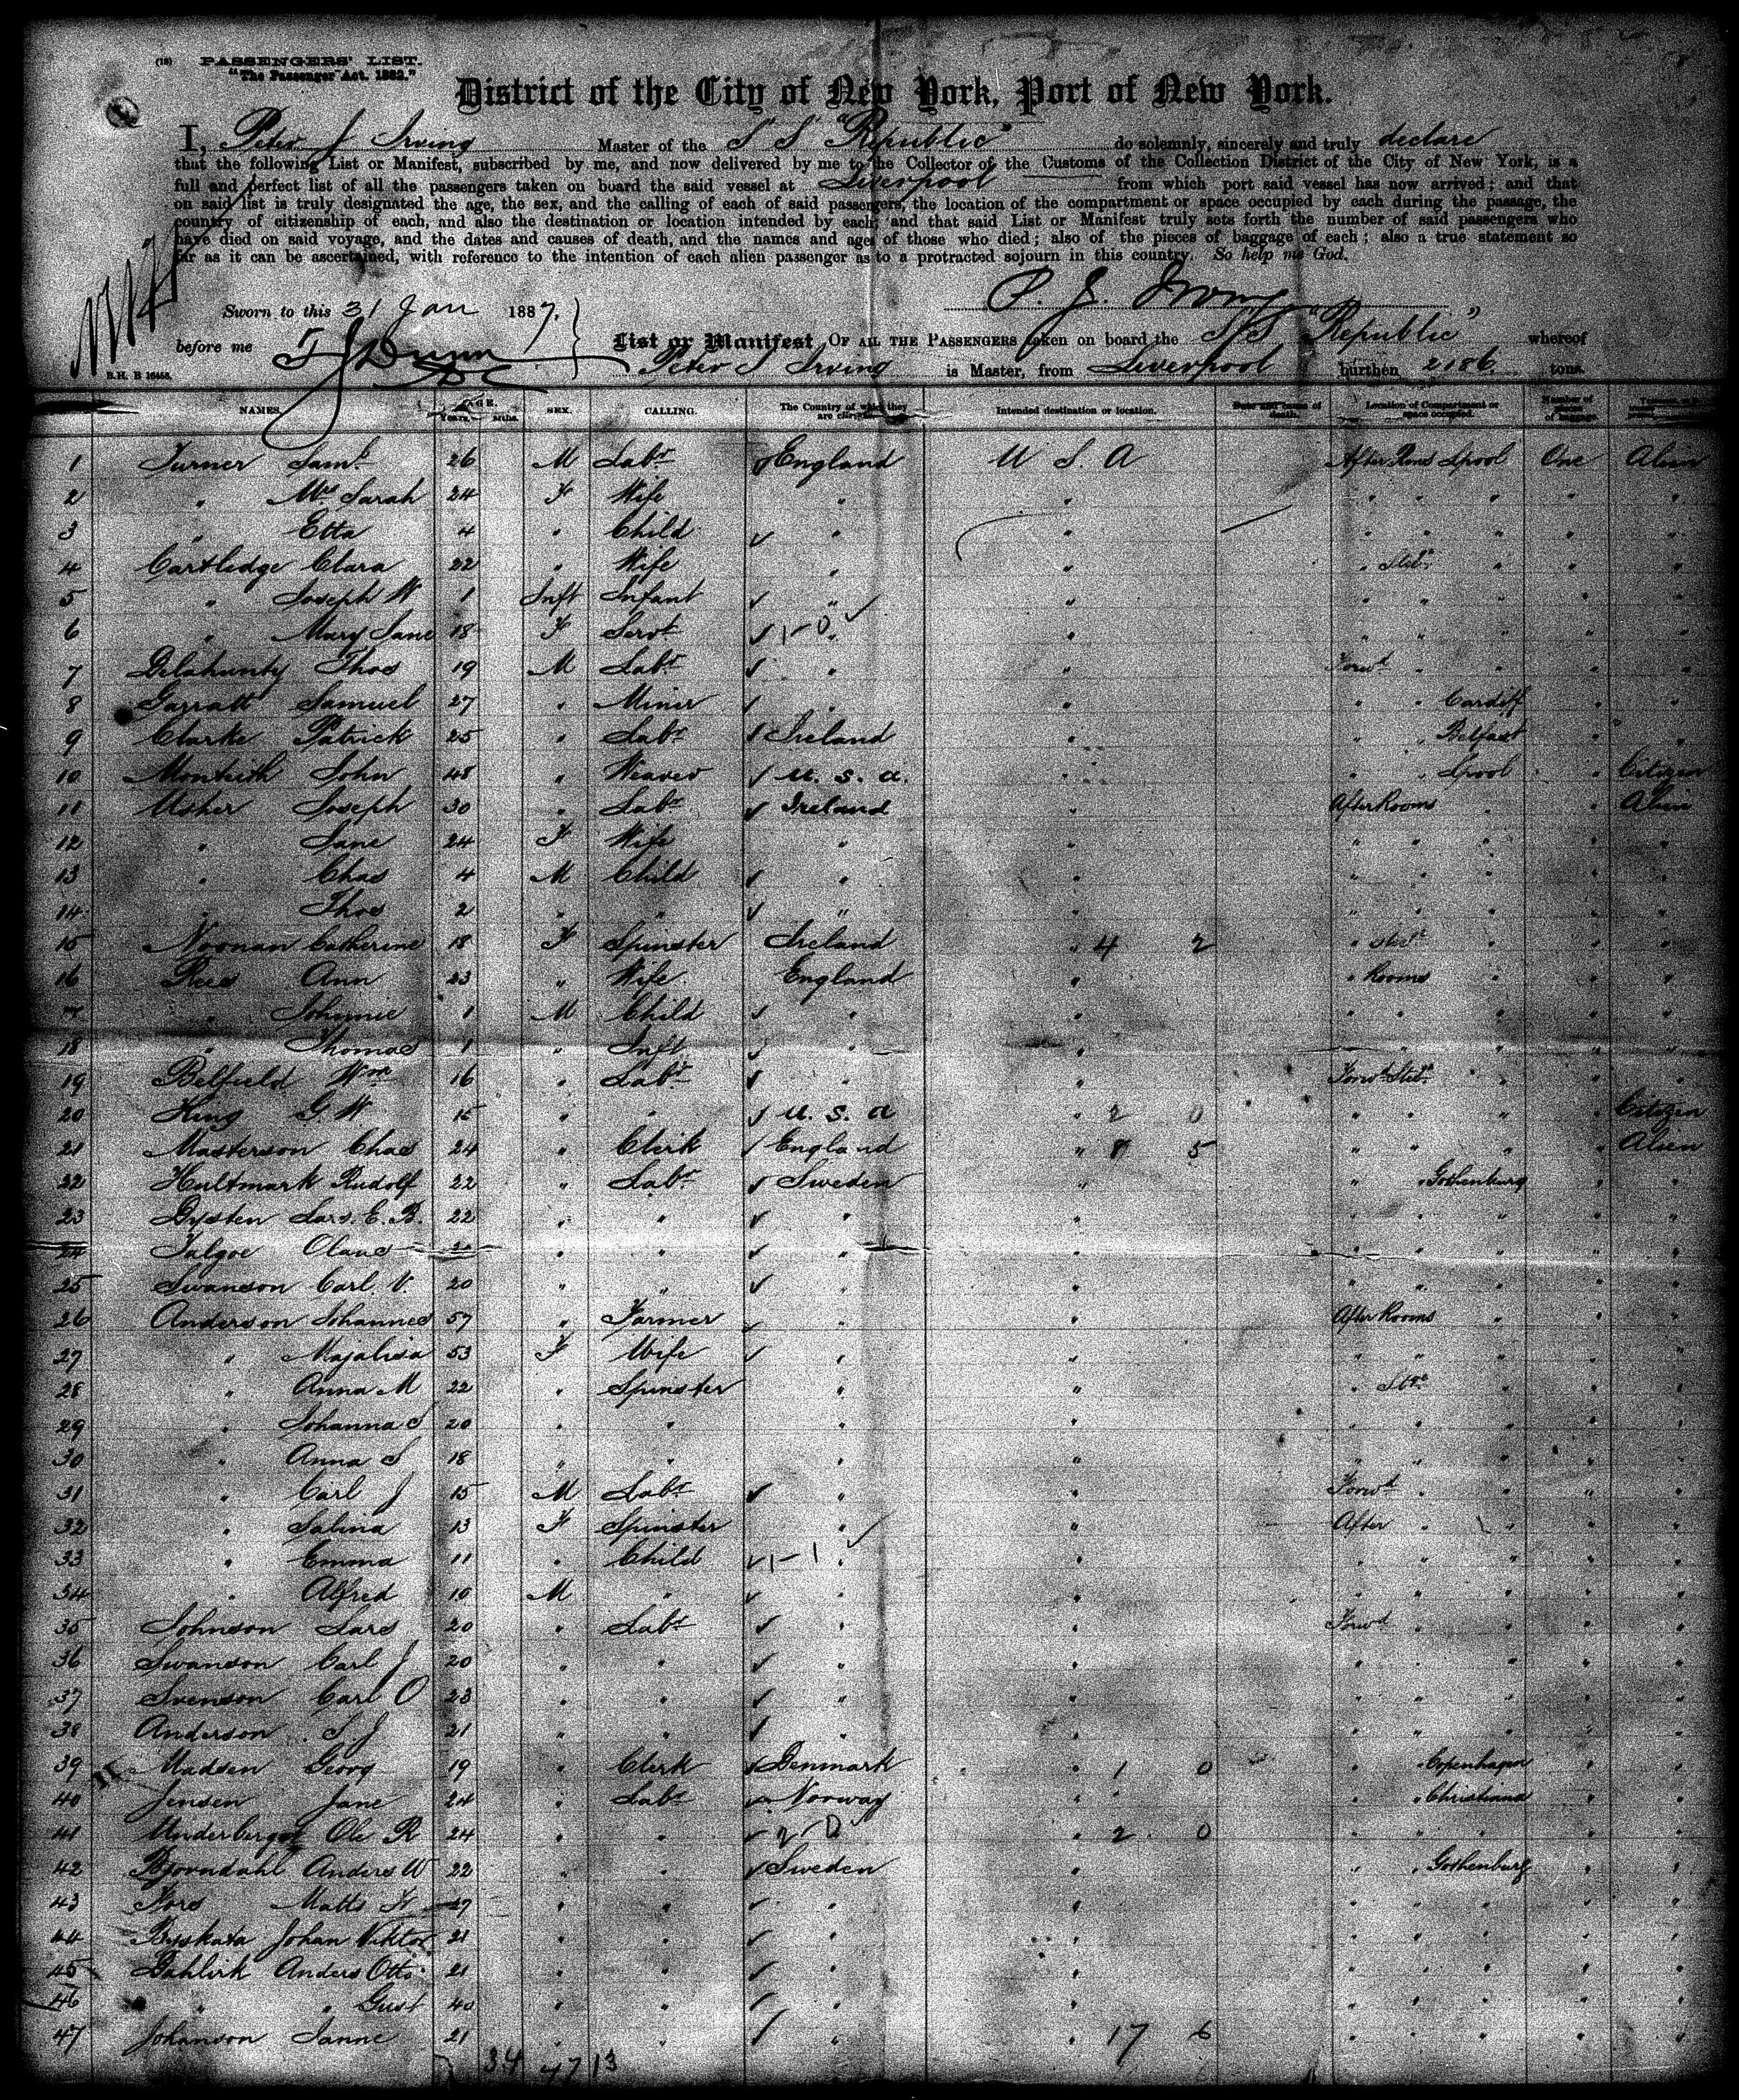 (18) PASSENGERS' LIST.
"The Passenger Act. 1882."
District of the City of New York, Port of New York.
I, Peter J Irving Master of the S S "Republic" do solemnly, sincerely and truly declare
that the following List or Manifest, subscribed by me, and now delivered by me to the Collector of the Customs of the Collection District of the City of New York, is a
full and perfect list of all the passengers taken on board the said vessel at Liverpool from which port said vessel has now arrived; and that
on said list is truly designated the age, the sex, and the calling of each of said passengers, the location of the compartment or space occupied by each during the passage, the
country of citizenship of each, and also the destination or location intended by each; and that said List or Manifest truly sets forth the number of said passengers who
have died on said voyage, and the dates and causes of death, and the names and ages of those who died; also of the pieces of baggage of each; also a true statement so
far as it can be ascertained, with reference to the intention of each alien passenger as to a protracted sojourn in this country. So help me God.
P. J. Irving
Sworn to this 31 Jan 1887.
before me T J Dunn DC
List or Manifest OF ALL THE PASSENGERS taken on board the S/S "Republic" whereof
Peter J Irving is Master, from Liverpool burthen 2186 tons.
B.H. B 16458.
NAMES. AGE. Years. Mths. SEX. CALLING. The Country of which they are citizens. Intended destination or location. Date and causes of death. Location of Compartment or space occupied. Number of pieces of baggage.
1 Turner Saml 26 M Labr England U S A After Rms Lpool One Alien
2 " Mrs Sarah 24 F Wife " " " " " " "
3 " Etta 4 " Child " " " " " " "
4 Cartledge Clara 22 " Wife " " " " " "
5 " Joseph W 1 Inft Infant " " " " " " "
6 " Mary Jane 18 F Servt 1-0 " " " " " " "
7 Delahunty Thos 19 M Labr " " Forwd " " " "
8 Garratt Samuel 27 " Miner " " " " Cardiff " "
9 Clarke Patrick 25 " Labr Ireland " " " Belfast " "
10 Monteith John 48 " Weaver U. S. A. " " " Lpool " Citizen
11 Usher Joseph 30 " Labr Ireland " After Rooms " " Alien
12 " Jane 24 F Wife " " " " " " "
13 " Chas 4 M Child " " " " " " "
14 " Thos 2 " " " " " " " " "
15 Noonan Catherine 18 F Spinster Ireland " 4 2 " " " "
16 Rees Ann 23 " Wife England " " Rooms " " "
7 " Johnnie 1 M Child " " " " " " "
18 " Thomas 1 " Inft " " " " " " "
19 Belfield Wm 16 " Labr " " Forwd " " "
20 King G. W. 15 " " U. S. A " 2 0 " " " " Citizen
21 Masterson Chas 24 " Clerk England " 8 5 " " " " Alien
22 Hultmark Rudolf 22 " Labr Sweden " " " Gothenburg " "
23 Dysten Lars. E. B. 22 " " " " " " " " "
24 Talgoe Olaus " " " " " " " " "
25 Swanson Carl V. 20 " " " " " " " "
26 Anderson Johannes 57 " Farmer " " After Rooms " " "
27 " Majalisa 53 F Wife " " " " " " "
28 " Anna M 22 " Spinster " " " " " "
29 " Johanna S 20 " " " " " " " " "
30 " Anna S 18 " " " " " " " "
31 " Carl J 15 M Labr " " Forwd " " " "
32 " Salina 13 F Spinster " " After " " " "
33 " Emma 11 " Child 1-1 " " " " " " "
34 " Alfred 10 M " " " " " " " "
35 Johnson Lars 20 " Labr " " Forwd " " " "
36 Swanson Carl J 20 " " " " " " " " "
37 Svenson Carl O 23 " " " " " " " " "
38 Anderson S J 21 " " " " " " " " "
39 Madsen Georg 19 " Clerk Denmark " 1 0 " " Copenhagen " "
40 Jensen Jane 24 " Labr Norway " " " Christiana " "
41 Ole R 24 " " 2-0 " 2 0 " " " " "
42 Bjorndahl Anders W 22 " " Sweden " " " Gothenburg " "
43 Fors Matts F " " " " " " " " "
44 Byskata Johan Viktor 21 " " " " " " " " "
45 Anders Otto 21 " " " " " " " " "
46 " " Gust 40 " " " " " " " " "
47 Johanson Janne 21 " " " " 17 6 " " " " "
34 47 13